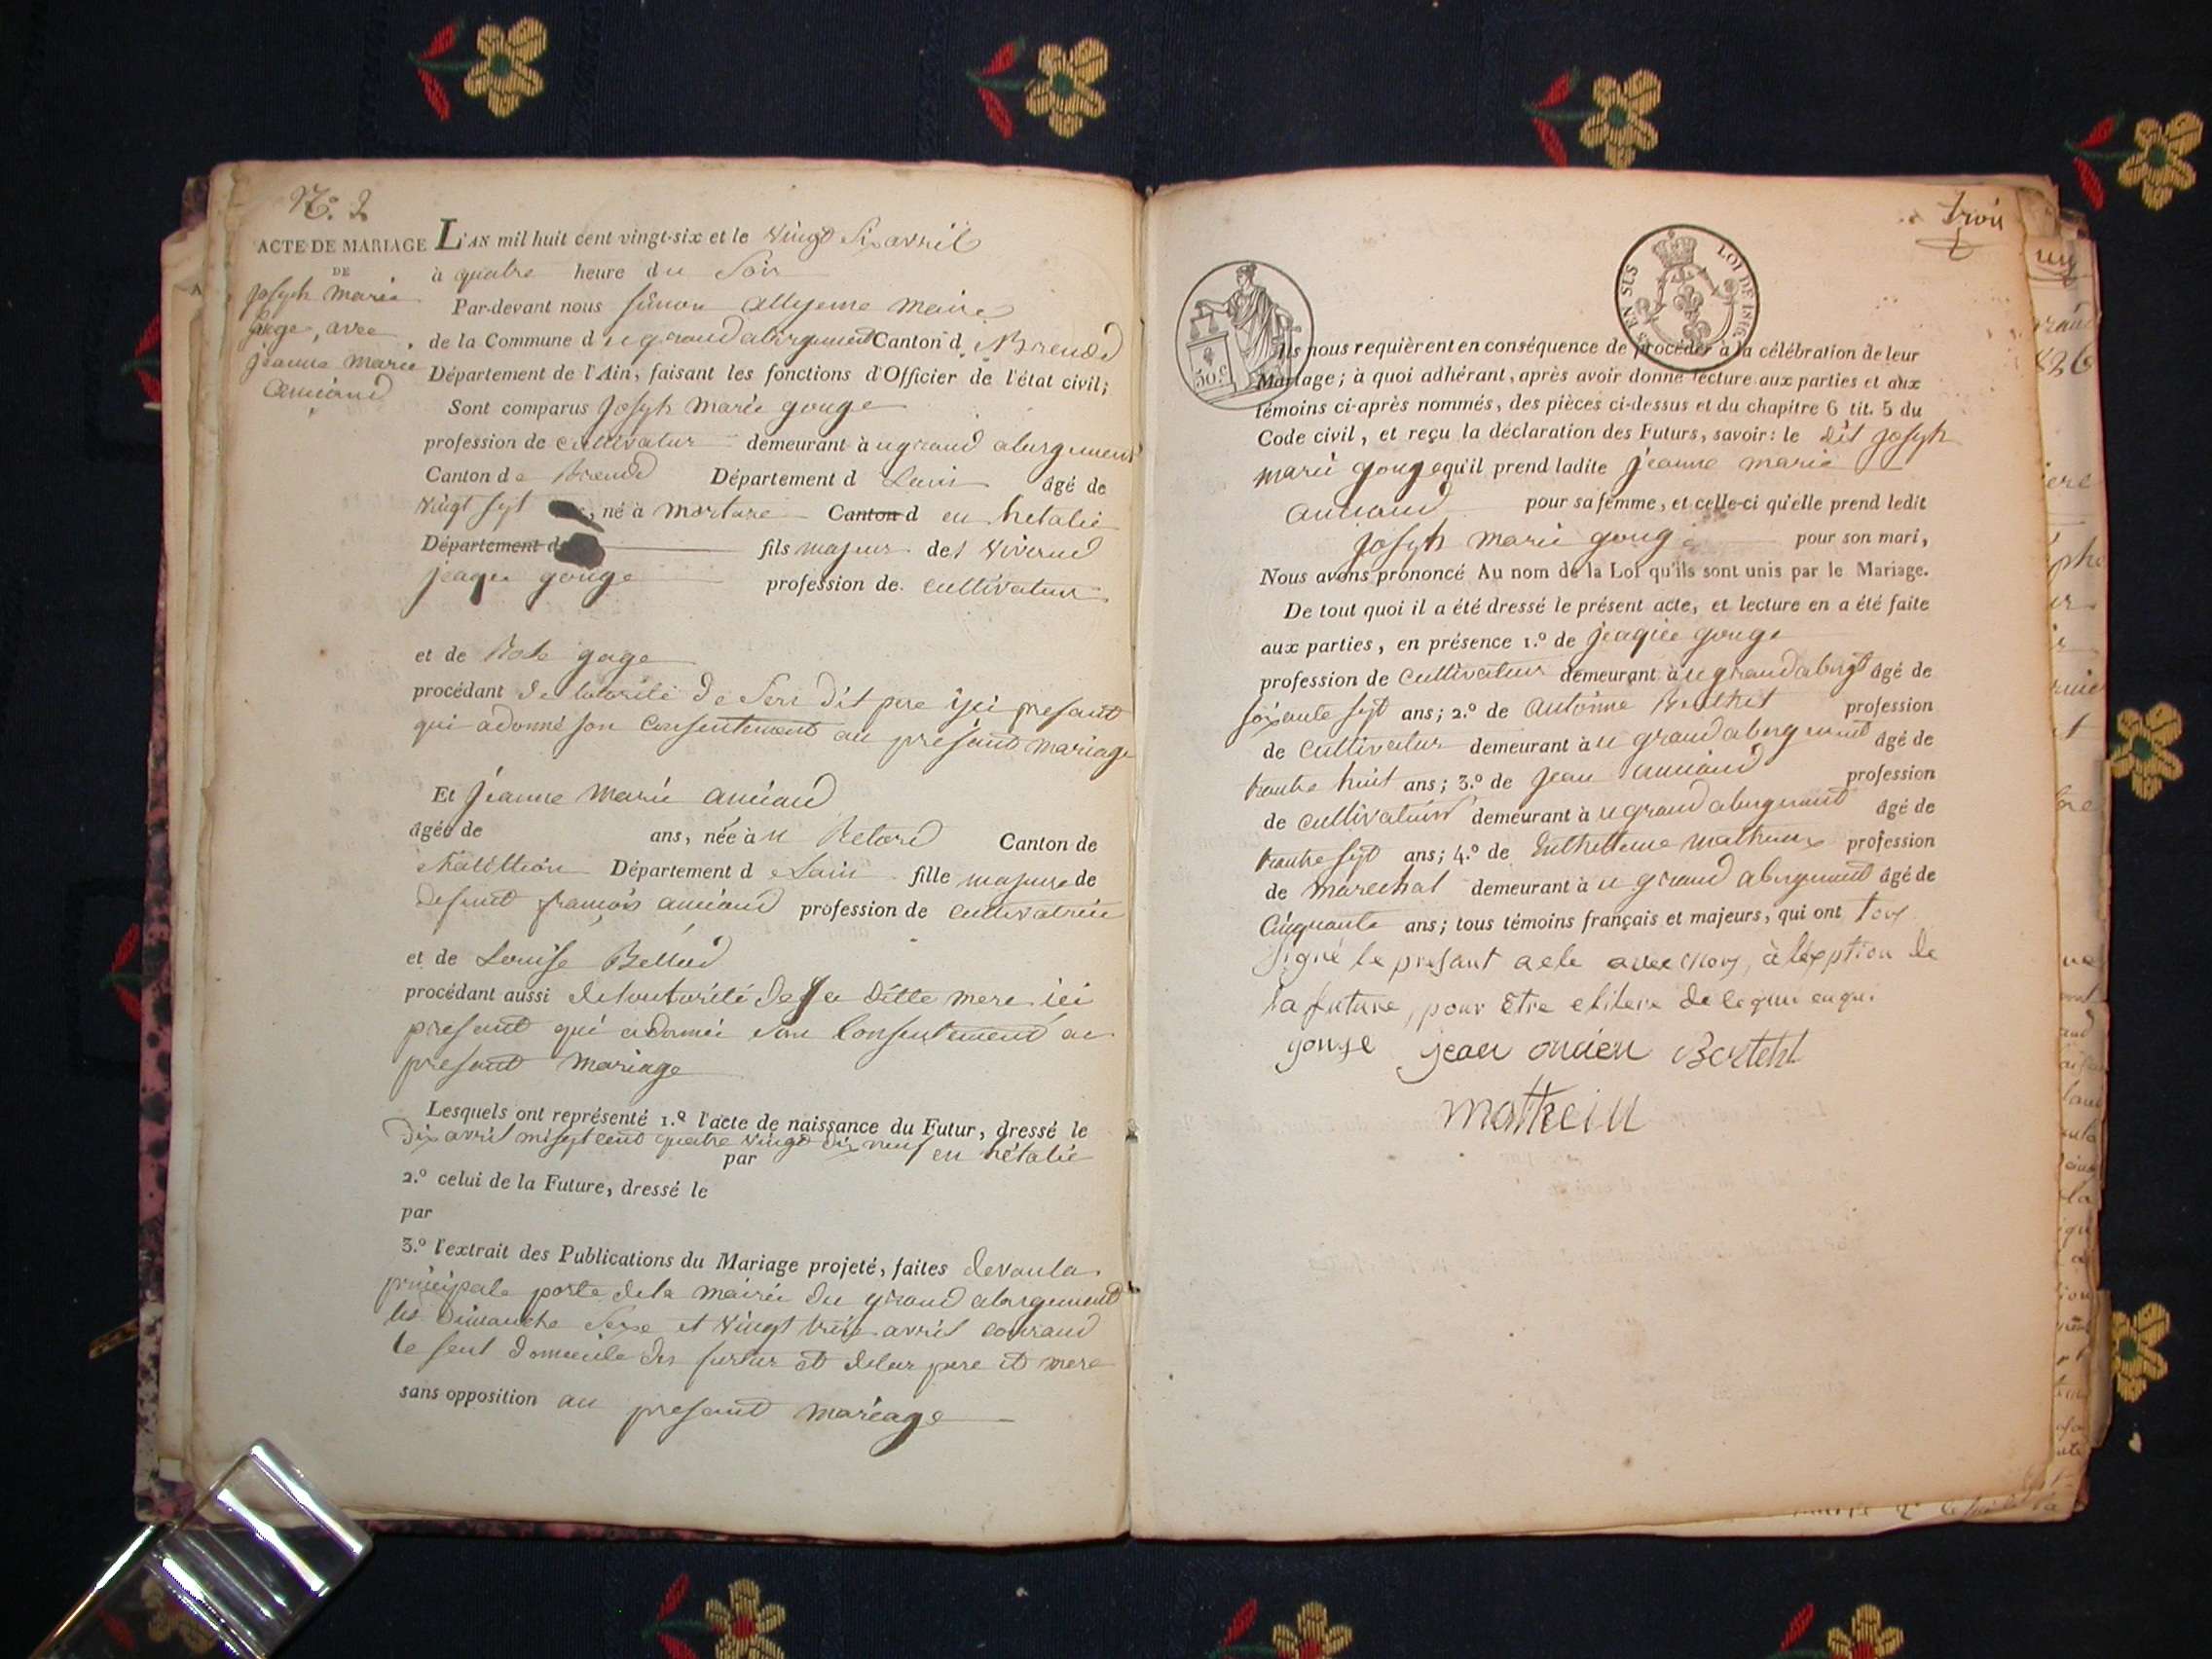 N.o 2
ACTE DE MARIAGE
DE
Joseph marie
gouge, avec
jeanne marie
anciand
L'AN mil huit cent vingt-six et le vingt six avril
à quatre heure du Soir
Par-devant nous simon maire
de la Commune d u grand abergement Canton d Brenod
Département de l'Ain, faisant les fonctions d'Officier de l'état civil;
Sont comparus Joseph marie gouge
profession de cultivatur demeurant à u grand abergement
Canton de Brenod Département d Lain âgé de
vingt sept né à mortare Canton d en hetalie
Département d fils majeur de
jeaque gouge profession de cultivateur
et de Rose gage
procédant de lotorité de Son dit pere ici presant
qui a donné son consentement au présant mariage
Et jeanne marie anciand
âgée de ans, née à u Retord Canton de
chatillion Département d e Lain fille majeure de
defunt françois anciand profession de cultivatrice
et de Louise Bellod
procédant aussi de loutorité de sa ditte mere ici
presant qui a donné son Consentement au
presant mariage
Lesquels ont représenté 1.o l'acte de naissance du Futur, dressé le
dix avril mil sept cent quatre vingt dix neuf en hétalie
par
2.o celui de la Future, dressé le
par
3.o l'extrait des Publications du Mariage projeté, faites devant la
principale porte de la mairie du grand abergement
les Dimanche Seze et vingt trois avril courand
le seul domicile des futur et de leur pere et mere
sans opposition au presant mariage
trois
EN SUS
LOI DE 1816
50.c
Ils nous requièrent en conséquence de procéder à la célébration de leur
Mariage; à quoi adhérant, après avoir donné lecture aux parties et aux
témoins ci-après nommés, des pièces ci-dessus et du chapitre 6 tit. 5 du
Code civil, et reçu la déclaration des Futurs, savoir: le dit joseph
marie gouge qu'il prend ladite jeanne marie
anciand pour sa femme, et celle-ci qu'elle prend ledit
joseph marie gouge pour son mari,
Nous avons prononcé Au nom de la Loi qu'ils sont unis par le Mariage.
De tout quoi il a été dressé le présent acte, et lecture en a été faite
aux parties, en présence 1.o de jeaque gouge
profession de cultivateur demeurant à u grand abergt âgé de
soixante sept ans; 2.o de antoinne Berthet profession
de cultivatur demeurant à u grand abergement âgé de
trante huit ans; 3.o de jean anciand profession
de cultivateur demeurant à u grand abergemant âgé de
trante sept ans; 4.o de mathieux profession
de marechal demeurant à u grand abergemant âgé de
Cinquante ans; tous témoins français et majeurs, qui ont tous
signé le presant acte avec nous, à léxeption de
la future, pour être de ce
gouge jean oncien Berteht
mathieiu